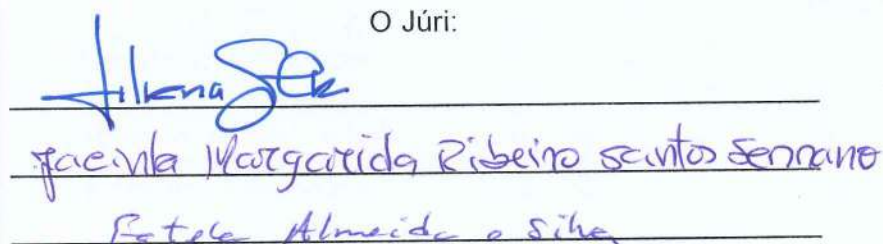 O Júri:
Jacinta Margarida Ribeiro Santos Serrano
Almeida e Silva